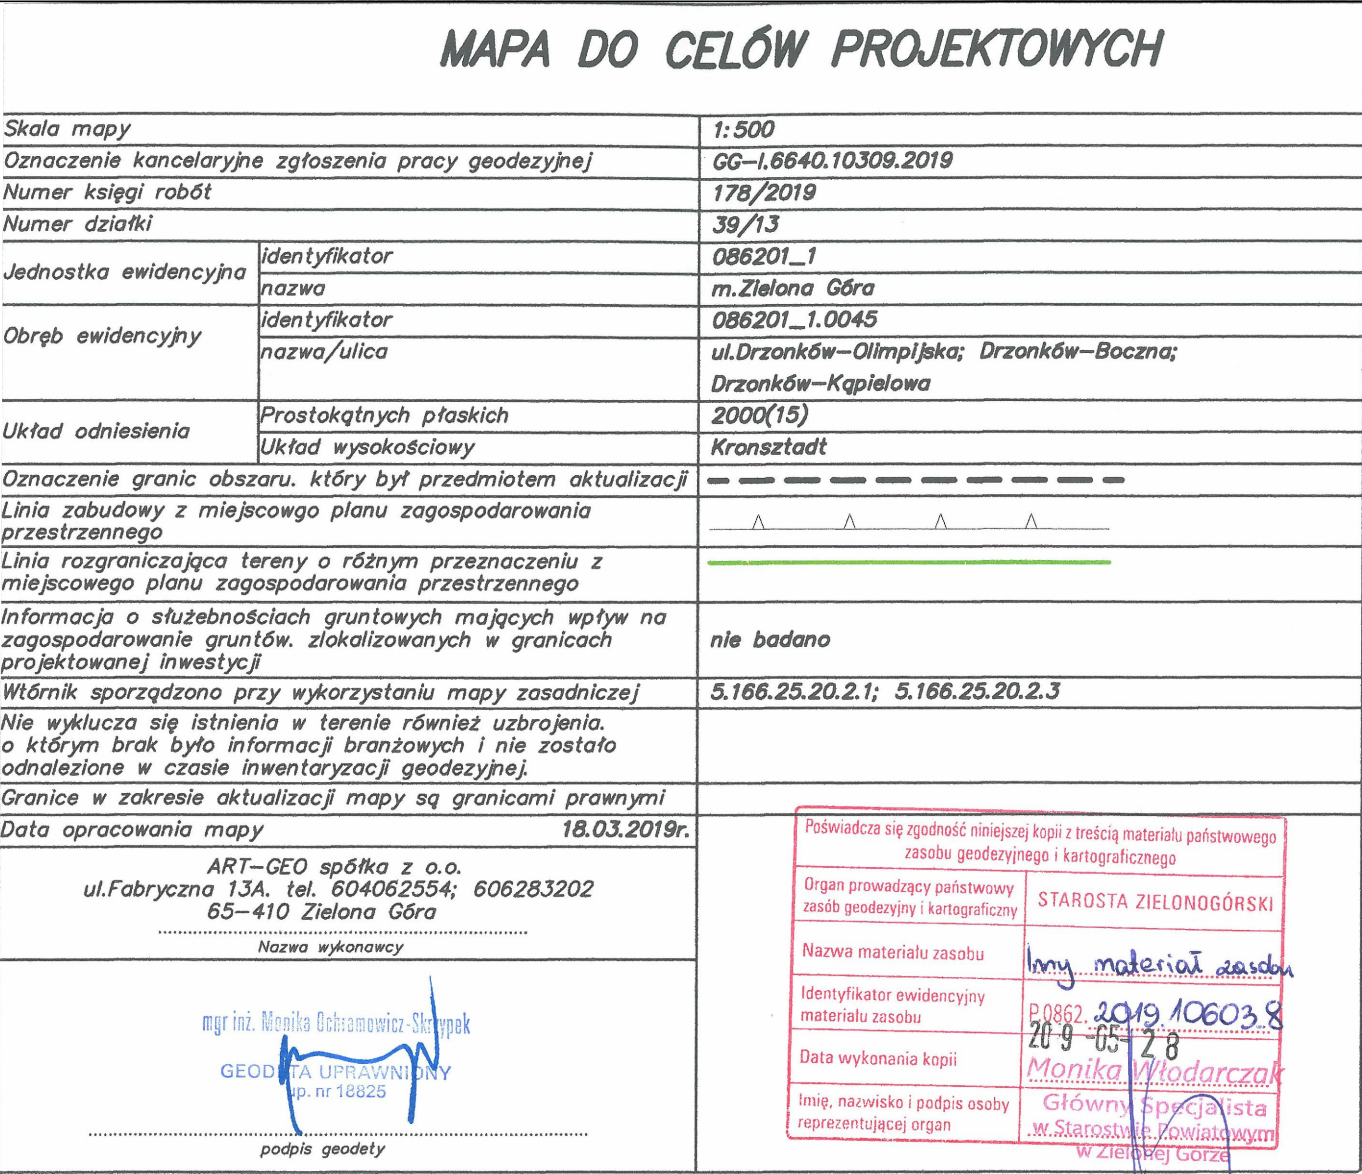 MAPA DO CELÓW PROJEKTOWYCH
Skala mapy 1:500
Oznaczenie kancelaryjne zgłoszenia pracy geodezyjnej GG-I.6640.10309.2019
Numer księgi robót 178/2019
Numer działki 39/13
Jednostka ewidencyjna identyfikator 086201_1
nazwa m.Zielona Góra
Obręb ewidencyjny identyfikator 086201_1.0045
nazwa/ulica ul.Drzonków-Olimpijska; Drzonków-Boczna;
Drzonków-Kąpielowa
Układ odniesienia Prostokątnych płaskich 2000(15)
Układ wysokościowy Kronsztadt
Oznaczenie granic obszaru. który był przedmiotem aktualizacji
Linia zabudowy z miejscowgo planu zagospodarowania
przestrzennego
Linia rozgraniczająca tereny o różnym przeznaczeniu z
miejscowego planu zagospodarowania przestrzennego
Informacja o służebnościach gruntowych mających wpływ na
zagospodarowanie gruntów. zlokalizowanych w granicach
projektowanej inwestycji
nie badano
Wtórnik sporządzono przy wykorzystaniu mapy zasadniczej 5.166.25.20.2.1; 5.166.25.20.2.3
Nie wyklucza się istnienia w terenie również uzbrojenia.
o którym brak było informacji branżowych i nie zostało
odnalezione w czasie inwentaryzacji geodezyjnej.
Granice w zakresie aktualizacji mapy są granicami prawnymi
Data opracowania mapy 18.03.2019r.
ART-GEO spółka z o.o.
ul.Fabryczna 13A. tel. 604062554; 606283202
65-410 Zielona Góra
Nazwa wykonawcy
mgr inż. Monika Ochramowicz-Skrzypek
GEODETA UPRAWNIONY
up. nr 18825
podpis geodety
Poświadcza się zgodność niniejszej kopii z treścią materiału państwowego
zasobu geodezyjnego i kartograficznego
Organ prowadzący państwowy
zasób geodezyjny i kartograficzny
STAROSTA ZIELONOGÓRSKI
Nazwa materiału zasobu Inny materiał zasobu
Identyfikator ewidencyjny
materiału zasobu
P.0862.2019.10603.8
Data wykonania kopii
Monika Włodarczak
Imię, nazwisko i podpis osoby
reprezentującej organ
Główny Specjalista
w Starostwie Powiatowym
w Zielonej Górze